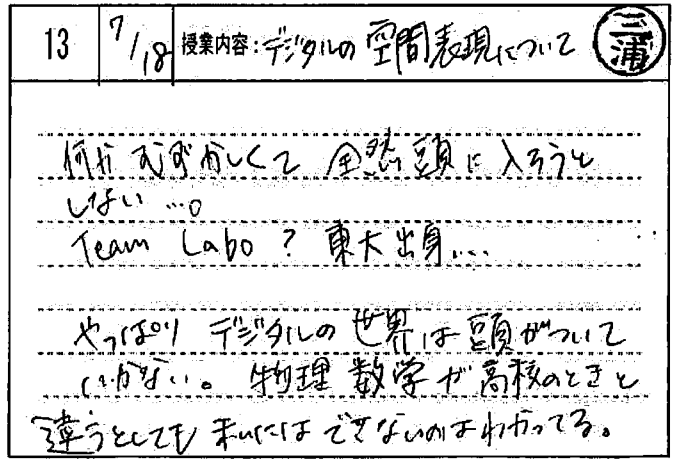 13 7/18 授業内容:デジタルの空間表現について 三浦
何かむずかしくて 全然頭に入ろうと
しない…。
Team Labo? 東大出身...
やっぱり デジタルの世界は頭がついて
いかない。物理 数学が高校のときと
違うとしても まいにはできないのはわかってる。